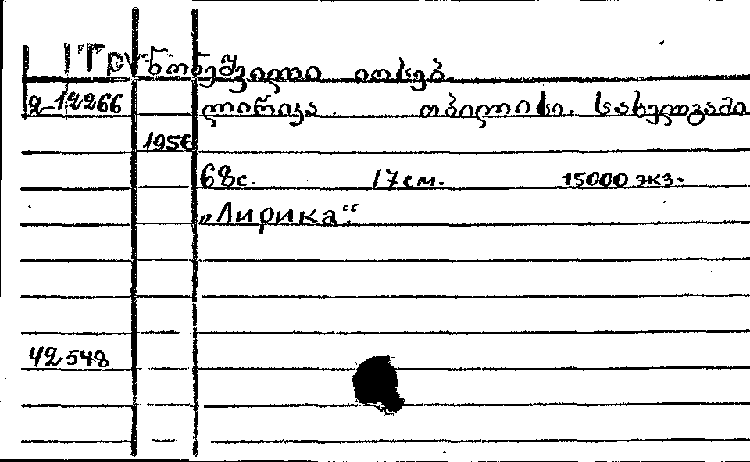 ГРУ ნონეშვილი იოსებ.
2-12266 ლირიკა. თბილისი. სახელგამი
1956
68с. 17см. 15000 экз.
„Лирика“
42548